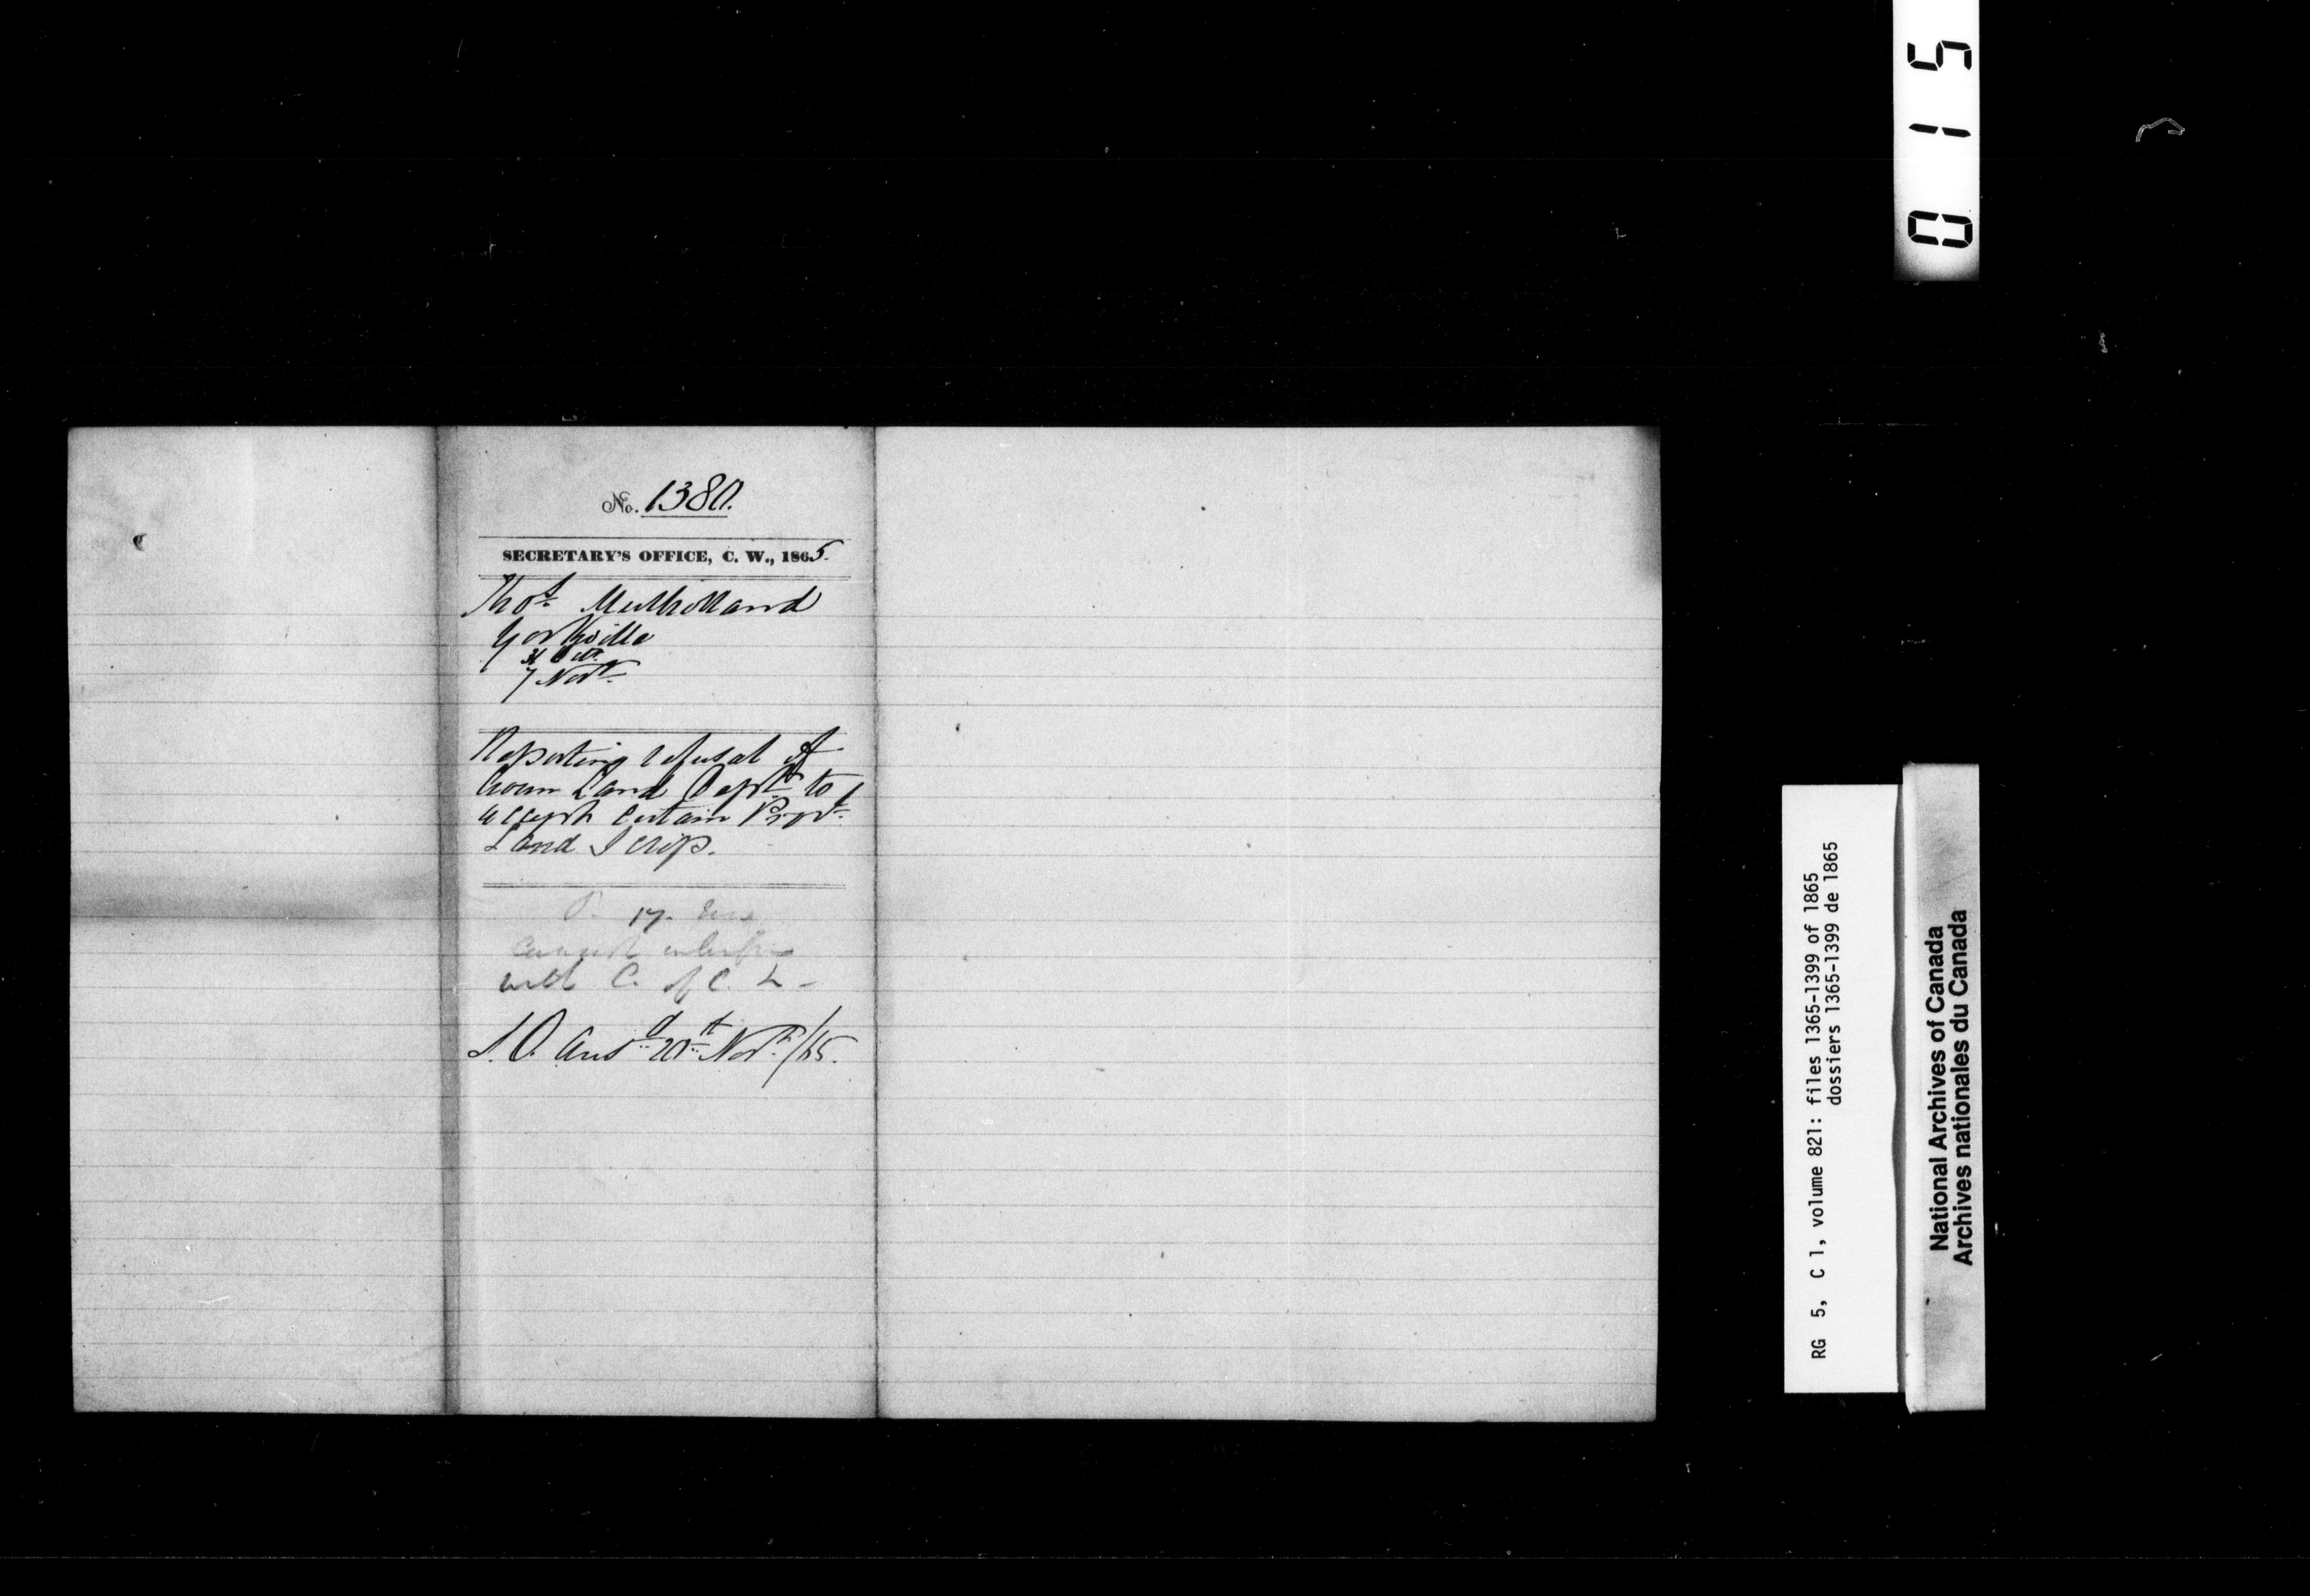 No. 1380.
SECRETARY'S OFFICE, C. W., 1865.
Thos. Mulholland
Yorkville
31 Octr.
7 Novr.
Reporting refusal of
Crown Land Deptt. to
accept certain Provl.
Land Scrip.
17.
cannot interfere
with C. of C. L -
Ansd. 20th Novr. /65.
015
RG 5, C 1, volume 821: files 1365-1399 of 1865
dossiers 1365-1399 de 1865
National Archives of Canada
Archives nationales du Canada